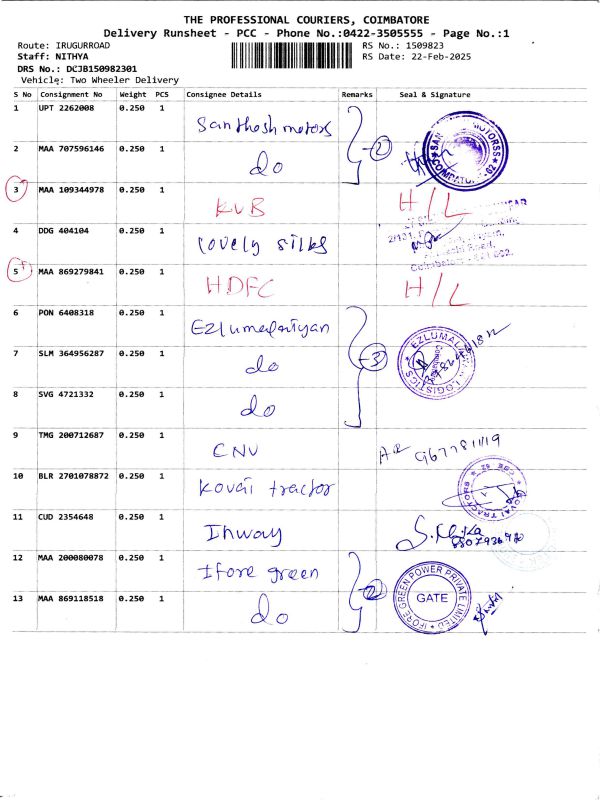 THE PROFESSIONAL COURIERS, COIMBATORE
Delivery Runsheet - PCC - Phone No.:0422-3505555 - Page No.:1
Route: IRUGURROAD RS No.: 1509823
Staff: NITHYA RS Date: 22-Feb-2025
DRS No.: DCJB150982301
Vehicle: Two Wheeler Delivery
S No Consignment No Weight PCS Consignee Details Remarks Seal & Signature
1 UPT 2262008 0.250 1 Santhosh motors
2 MAA 707596146 0.250 1 do 2
3 MAA 109344978 0.250 1 KVB H/L
4 DDG 404104 0.250 1 lovely silks
5 MAA 869279841 0.250 1 HDFC H/L
6 PON 6408318 0.250 1 Ezlumalaiyan
7 SLM 364956287 0.250 1 do 3 EZLUMALAI LOGISTICS
8 SVG 4721332 0.250 1 do
9 TMG 200712687 0.250 1 CNV
10 BLR 2701078872 0.250 1 Kovai tractor KOVAI TRACTORS
11 CUD 2354648 0.250 1 Inway
12 MAA 200080078 0.250 1 Ifore green
13 MAA 869118518 0.250 1 do 2 IFORE GREEN POWER PRIVATE LIMITED GATE